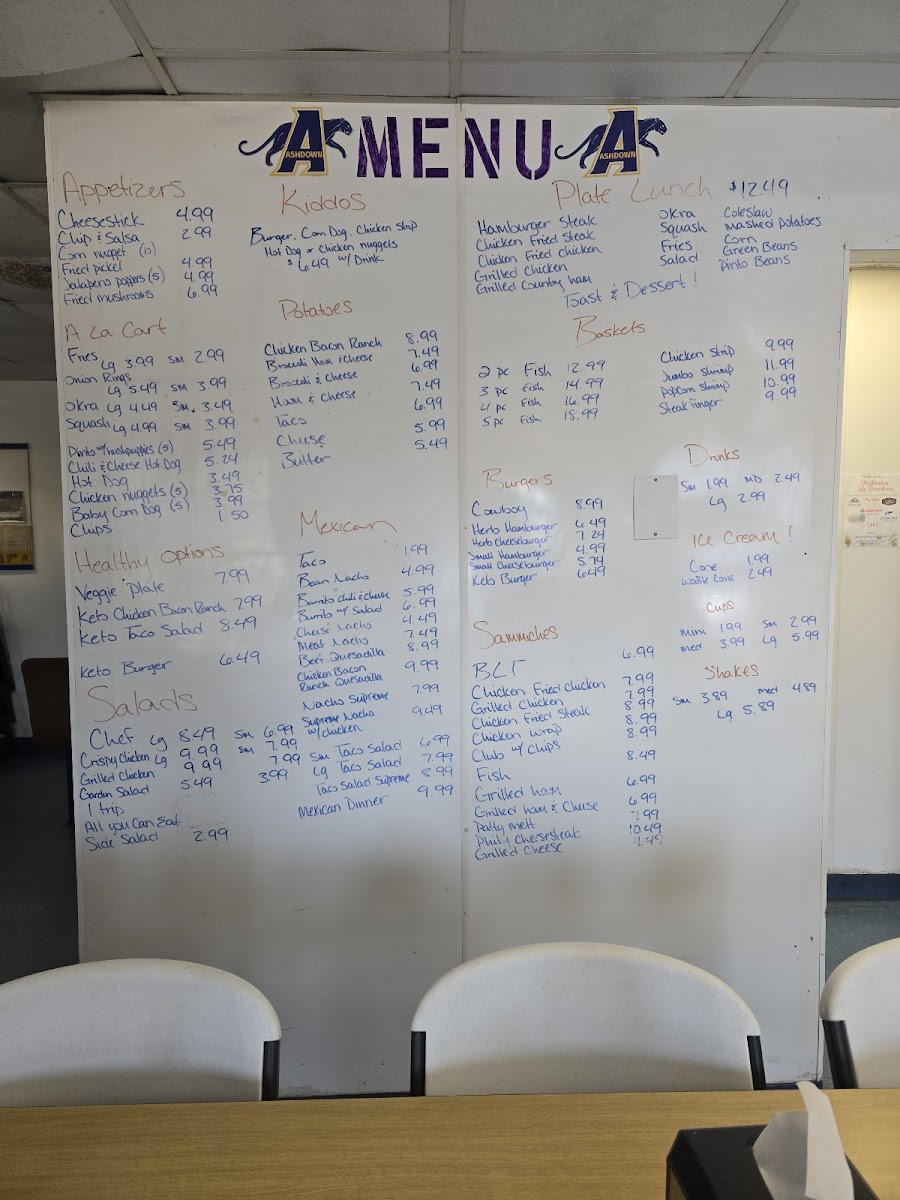 A ASHDOWN MENU A ASHDOWN
Appetizers
Cheesestick 4.99
Chip & Salsa 2.99
Corn nugget (10)
Fried pickel 4.99
Jalapeno poppers (5) 4.99
Fried mushrooms 6.99
A La Cart
Fries Lg 3.99 Sm 2.99
Onion Rings
Lg 5.49 Sm 3.99
Okra Lg 4.49 Sm. 3.49
Squash Lg 4.99 Sm 3.99
Pinto w/ hushpuppies (5) 5.49
Chili & Cheese Hot Dog 5.24
Hot Dog 3.49
Chicken nuggets (5) 3.75
Baby Corn Dog (5) 3.99
Chips 1.50
Healthy Options
Veggie Plate 7.99
Keto Chicken Bacon Ranch 7.99
Keto Taco Salad 8.49
Keto Burger 6.49
Salads
Chef Lg 8.49 Sm 6.99
Crispy Chicken Lg 9.99 Sm 7.99
Grilled Chicken 9.99 7.99
Garden Salad 5.49 3.99
1 trip
All you Can Eat
Side Salad 2.99
Kiddos
Burger, Corn Dog, Chicken Strip
Hot Dog or Chicken nuggets
$6.49 w/ Drink
Potatoes
Chicken Bacon Ranch 8.99
Brocoli Ham & Cheese 7.49
Brocoli & Cheese 6.99
Ham & Cheese 7.49
Taco 6.99
Cheese 5.99
Butter 5.49
Mexican
Taco 1.99
Bean Nacho 4.99
Burrito Chili & Cheese 5.99
Burrito w/ Salad 6.99
Cheese Nacho 4.49
Meat Nacho 7.49
Beef Quesadilla 8.99
Chicken Bacon
Ranch Quesadilla 9.99
Nacho Supreme 7.99
Supreme Nacho
w/ chicken 9.49
Sm Taco Salad 6.99
Lg Taco Salad 7.99
Taco Salad Supreme 8.99
Mexican Dinner 9.99
Plate Lunch $12.49
Hamburger Steak Okra Coleslaw
Chicken Fried Steak Squash Mashed Potatoes
Chicken Fried Chicken Fries Corn
Grilled Chicken Salad Green Beans
Grilled Country ham Pinto Beans
Toast & Dessert!
Baskets
2 pc Fish 12.99
3 pc Fish 14.99
4 pc Fish 16.99
5 pc Fish 18.99
Chicken Strip 9.99
Jumbo Shrimp 11.99
Popcorn Shrimp 10.99
Steak Finger 9.99
Burgers
Cowboy 8.99
Herb Hamburger 6.49
Herb Cheeseburger 7.24
Small Hamburger 4.99
Small Cheeseburger 5.74
Keto Burger 6.49
Drinks
Sm 1.99 MD 2.49
Lg 2.99
Ice Cream!
Cone 1.99
Waffle Cone 2.49
Cups
Mini 1.99 Sm 2.99
med 3.99 Lg 5.99
Shakes
Sm 3.89 med 4.89
Lg 5.89
Sammiches
BLT 6.99
Chicken Fried Chicken 7.99
Grilled Chicken 7.99
Chicken Fried Steak 8.99
Chicken Wrap 8.99
Club w/ Chips 8.99
Fish 8.49
Grilled ham 6.99
Grilled ham & Cheese 6.99
Patty Melt 7.99
Philly Cheesesteak 10.49
Grilled Cheese 4.49